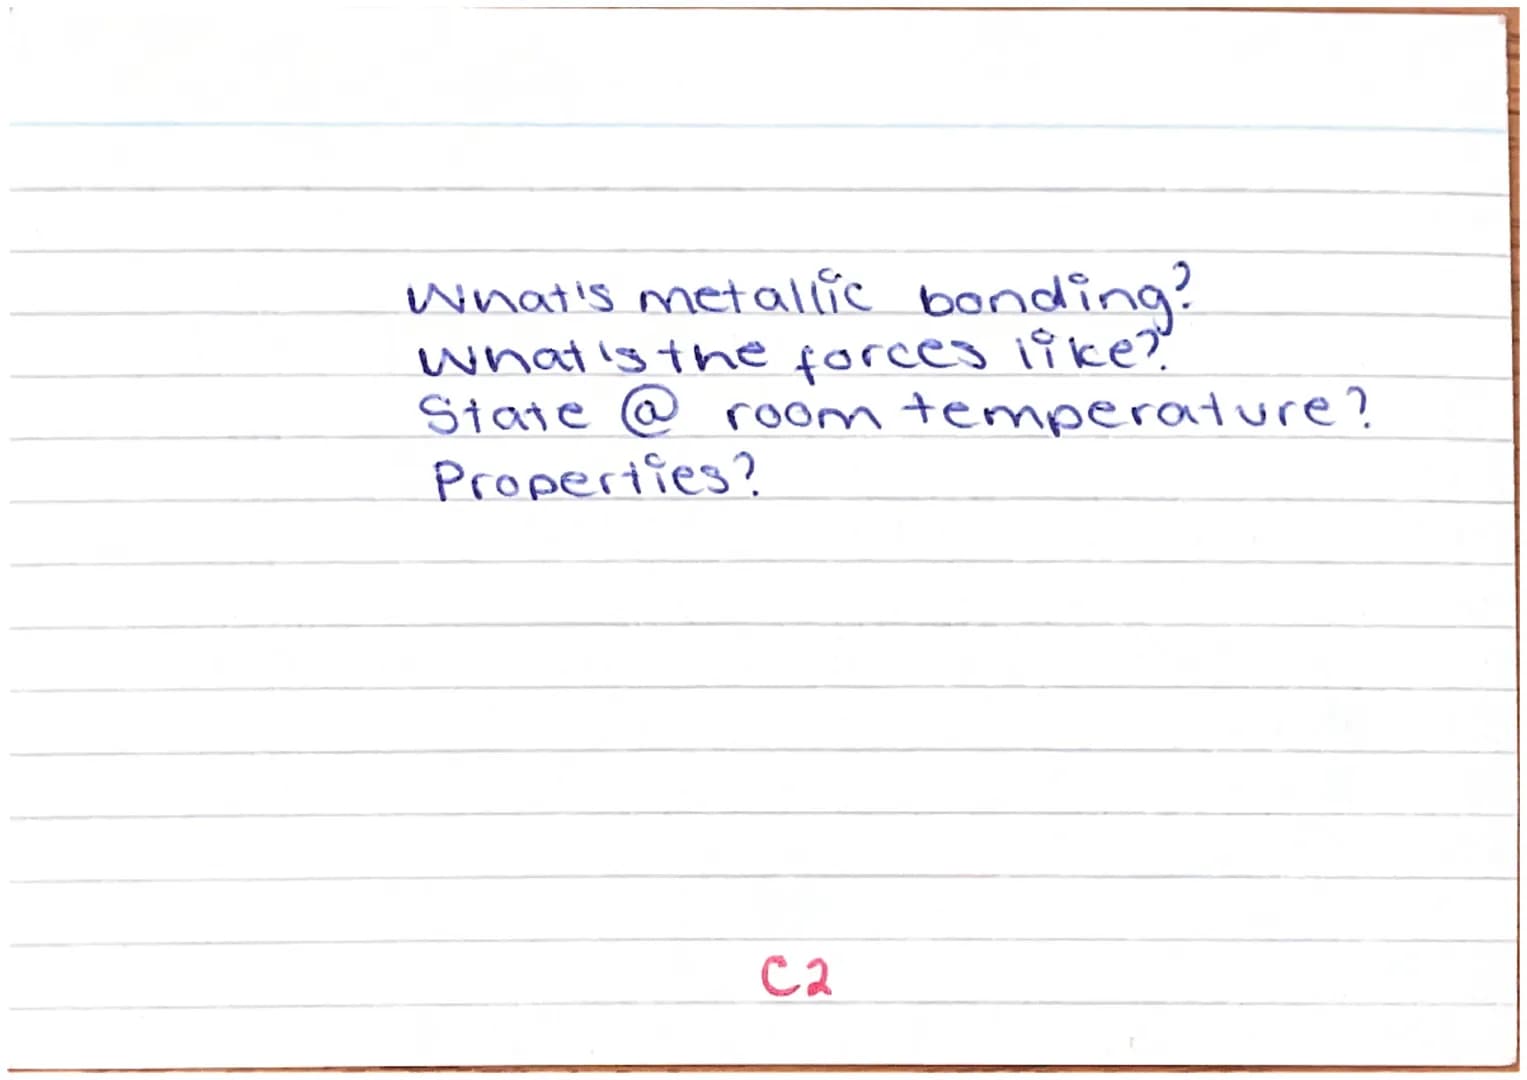 What's metallic bonding?
What's the forces like?
State @ room temperature?
Properties?
C2